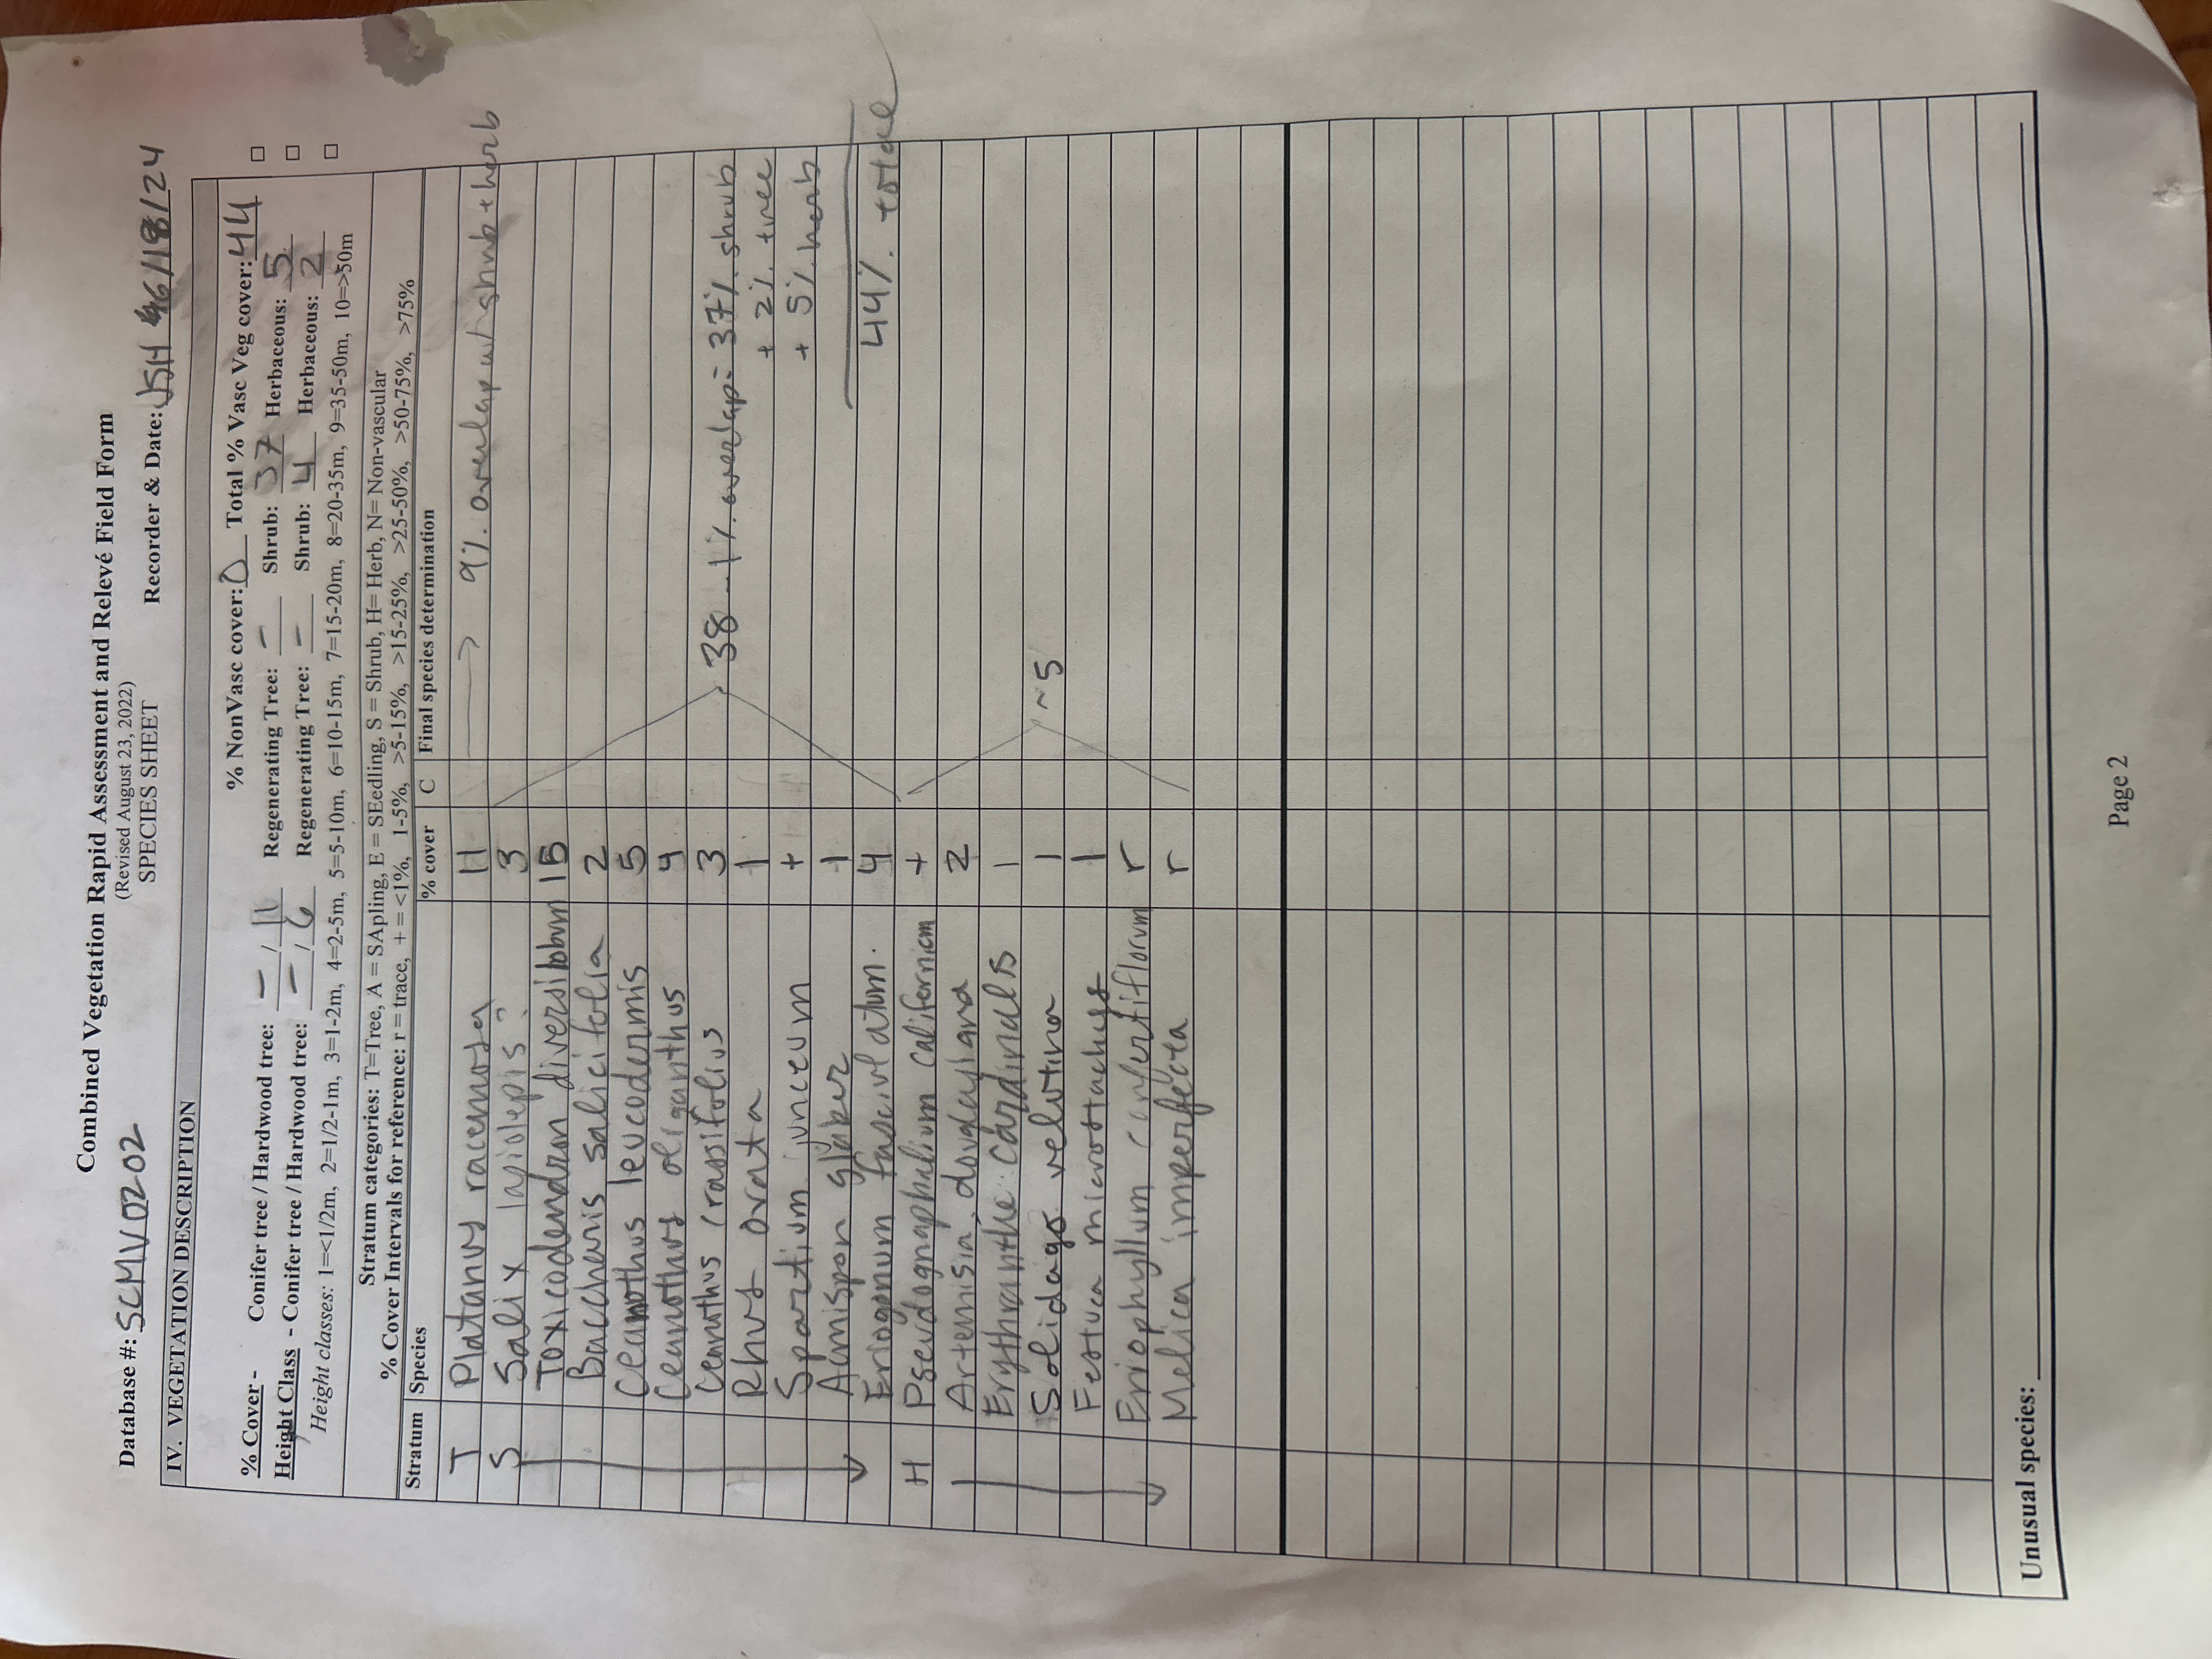 Combined Vegetation Rapid Assessment and Relevé Field Form
(Revised August 23, 2022)
SPECIES SHEET
Database #: SCMV0202 Recorder & Date: JSH 6/18/24
IV. VEGETATION DESCRIPTION
% NonVasc cover: 0 Total % Vasc Veg cover: 44
% Cover - Conifer tree / Hardwood tree: — / 11 Regenerating Tree: — Shrub: 37 Herbaceous: 5
Height Class - Conifer tree / Hardwood tree: — / 6 Regenerating Tree: — Shrub: 4 Herbaceous: 2
Height classes: 1=<1/2m, 2=1/2-1m, 3=1-2m, 4=2-5m, 5=5-10m, 6=10-15m, 7=15-20m, 8=20-35m, 9=35-50m, 10=>50m
Stratum categories: T=Tree, A = SApling, E = SEedling, S = Shrub, H= Herb, N= Non-vascular
% Cover Intervals for reference: r = trace, + = <1%, 1-5%, >5-15%, >15-25%, >25-50%, >50-75%, >75%
Stratum Species % cover C Final species determination
T Platanus racemosa 11 → 9% overlap w/ shrub + herb
S Salix lasiolepis? 3
Toxicodendron diversilobum 15
Baccharis salicifolia 2
Ceanothus leucodermis 5
Ceanothus oliganthus 4
Ceanothus crassifolius 3 38 - 1% overlap = 37% shrub
Rhus ovata 1 + 2% tree
Spartium junceum + + 5% herb
Acmispon glaber 1
Eriogonum fasciculatum. 4 44% total
H Pseudognaphalium californicum +
Artemisia douglasiana 2
Erythranthe cardinalis 1
Solidago velutina 1 ~5
Festuca microstachys 1
Eriophyllum confertiflorum r
Melica imperfecta r
Unusual species:
Page 2